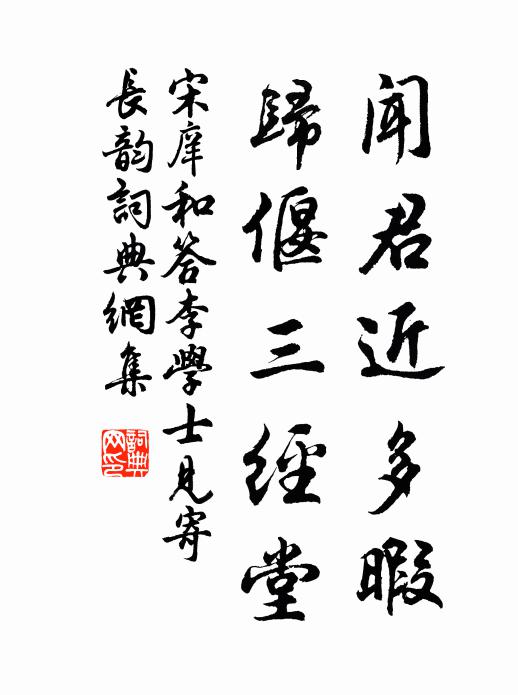 聞君近多暇
歸偃三經堂
宋庠和答李學士見寄
長韵詞典網集
詞典網印